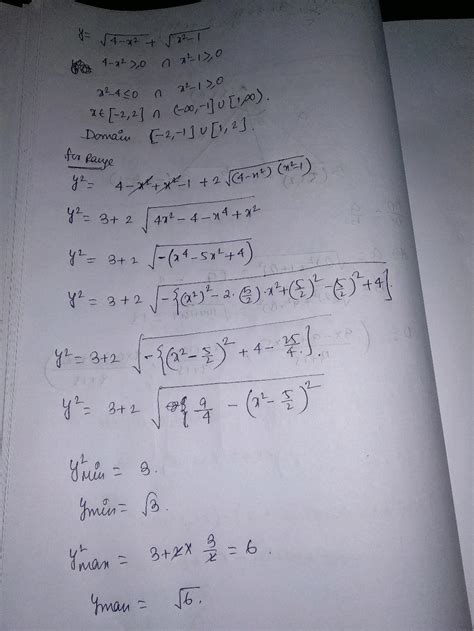 y = √(4-x²) + √(x²-1)
4-x² ≥ 0 ∩ x²-1 ≥ 0
x²-4 ≤ 0 ∩ x²-1 ≥ 0
x ∈ [-2,2] ∩ (-∞,-1] ∪ [1,∞).
Domain [-2,-1] ∪ [1,2].
for Range
y² = 4-x²+x²-1 + 2√((4-x²)(x²-1))
y² = 3+2 √(4x²-4-x⁴+x²)
y² = 3+2 √(-(x⁴-5x²+4))
y² = 3+2 √(-{(x²)²-2·(5/2)·x²+(5/2)²-(5/2)²+4}.)
y² = 3+2 √(-{(x²-5/2)²+4-25/4}.)
y² = 3+2 √({9/4-(x²-5/2)²)
y²min = 3.
ymin = √3.
y²max = 3+2×3/2 = 6.
ymax = √6.